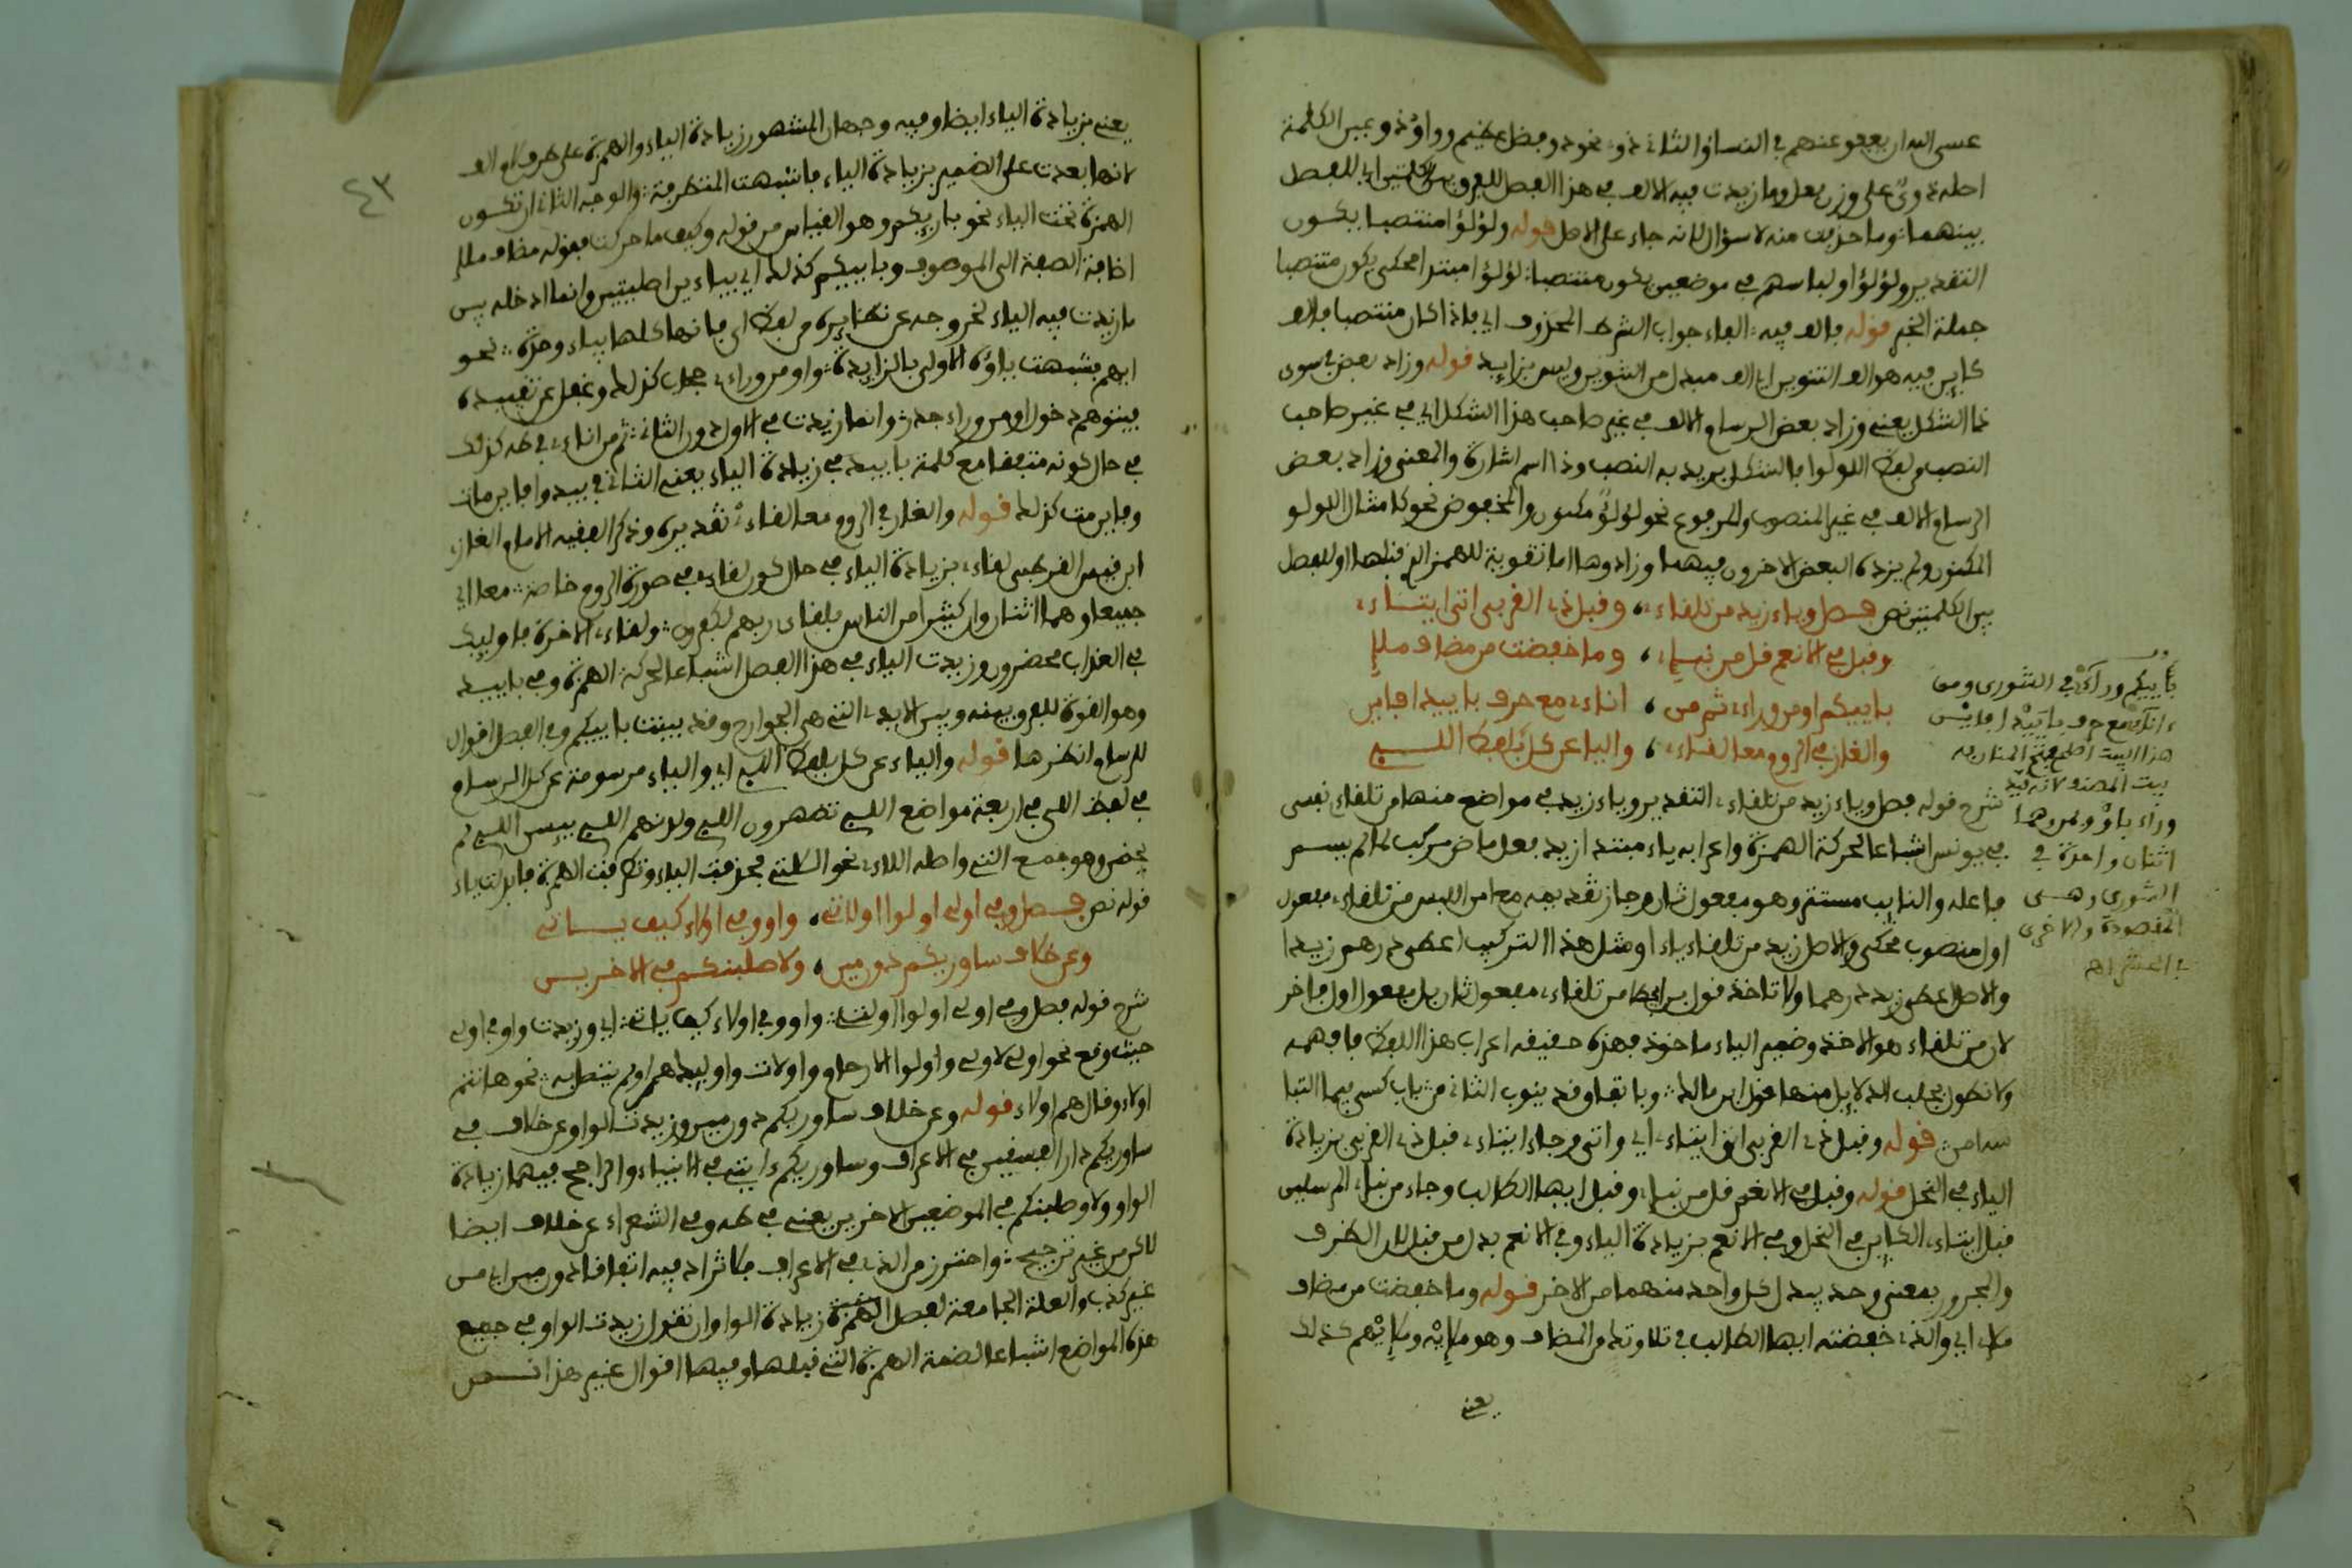 عسى الله ان يعفو عنهم في النساء الثاني ذو نحو ذو فضل عظيم وواو ذو وعين الكلمة
اصله ذوي على وزن فعل وما زيدت فيه الالف في هذا الفصل للفرق بين الكلمتين اي للفصل
بينهما وما حذفت منه لا سؤال لانه جاء على الاصل قوله ولؤلؤا منتصبا يكون
التقدير ولؤلؤا ولباسهم في موضعين يكون منتصبا لؤلؤا مبتدا محكى يكون منتصبا
جملة الخبر قوله بالف فيه الفاء جواب الشرط المحذوف اي فاذا كان منتصبا فالف
كاين فيه هو الف التنوين اي الف مبدل من التنوين وليس بزايد قوله وزاد بعض في سوى
ذا الشكل يعني وزاد بعض الرسام الالف في غير صاحب هذا الشكل اي في غير صاحب
النصب من لفظ اللؤلؤا فالشكل يريد به النصب وذا اسم اشارة والمعنى وزاد بعض
الرسام الالف في غير المنصوب والمرفوع نحو لؤلؤ مكنون والمخفوض نحو كامثال اللولو
المكنون ولم يزده البعض الاخرون فيهما وزادوها اما تقوية للهمز التي قبلها او للفصل
بين الكلمتين نص فصل وياء زيد من تلقاءي، وقبل ذي القربى اتى ايتاءي
وقبل في الانعام قل من نبإ، وما خفضت من مضاف ملإ
باييكم او من وراءي ثم من، اناءي مع حرف باييد افاين
والغاز في الروم معا لقاءي، واليا عن كل بلفظ اللـي
بأييكم وراءي في الشورى ومن
ءاناءي مع حرف بأييد افاين
هذا البيت اصلح بعض المغاربه
بيت المصنف لانه قيد
وراء باو ولم وهما
اثنان واحدة في
الشورى وهي
المقصودة والاخرى
في الحشر اه
شرح قوله فصل وياء زيد من تلقاءي التقدير وياء زيد في مواضع منها من تلقاءي نفسى
في يونس اشباعا لحركة الهمزة واعرابه ياء مبتدا زيد فعل ماض مركب لما لم يسم
فاعله والنايب مستتر وهو مفعول ثان وجاز تقديمه مع امن اللبس من تلقاءي مفعول
اول منصوب محكى والاصل زيد من تلقاءي ياء او مثل هذا التركيب اعطى درهم زيدا
والاصل اعطى زيد درهما ولا تاخذ قول من لفظ من تلقاءي مفعول ثان بل مفعول اول فاخر
لان من تلقاء هو الاخذ وضمير الياء ماخوذ فهذه حقيقه اعراب هذا اللفظ فافهمه
ولا نطول بجلب الدلايل منها قول ابن مالك وباتفاق قد ينوب الثاني من باب كسى فيما التبا
سه امن قوله وقبل ذي القربى اتى ايتاءي اي واتى وجاء ايتاءي قبل ذي القربى بزيادة
الياء في النحل قوله وقبل في الانعم قل من نبإ وقبل ايها الطالب وجاء من نبإ المرسلين
قبل ايتاءي الكاين في النحل وفي الانعم بزيادة الياء وفي الانعم بدل من قبل لان الظرف
والمجرور بمعنى وحد يبدل كل واحد منهما من الاخر قوله وما خفضت من مضاف
ملإ اي والذي خفضته ايها الطالب في تلاوتك من المضاف وهو ملإيه وملإيهم كذلك
يعني
٤٣
يعني بزيادة الياء ايضا وفيه وجهان المشهور زيادة الياء والهمزة على طرف الالف
لانها بعدت على الضمير بزيادة الياء فاشبهت المتطرفة والوجه الثاني ان تكون
الهمزة تحت الياء نحو باريكم وهو القياس من قوله وكيف ما حركت فقوله مضاف ملإ
اضافة الصفة الى الموصوف وباييكم كذلك اي بياءين اصليتين وانما ادخله بين
ما زيدت فيه الياء لخروجه عن نظايره من لفظ اي فانها كلها بياء واحدة نحو
ايهم فشبهت ياؤه الاولى بالزايدة او من وراءي حجاب كذلك وغفل عن تقييده
فيتوهم دخول او من وراء جدر وانما زيدت في الاول دون الثاني ثم من اناءي في طه كذلك
في حال كونه متفقا مع كلمة باييد في زيادة الياء يعني الثاني في بييد وافاين مات
وافاين مت كذلك قوله والغاز في الروم معا لقاءي تقديره وذكر الفقيه الامام الغاز
ابن قيس القرطبى لقاءي بزيادة الياء في حال كون لقاءي في صورة الروم خاصة معا اي
جميعا وهما اثنان وان كثيرا من الناس بلقاءي ربهم لكفرون ولقاءي الاخرة فاوليك
في العذاب محضرون وزيدت الياء في هذا الفصل اشباعا لحركة الهمزة وفي باييد
وهو القوة للفرق بينه وبين الايدي التي هي الجوارح وقد بينت باييكم وفي الفصل اقوال
للرسام انظرها قوله والياء عن كل بلفظ اللـي اي والياء مرسومة عن كل الرسام
في لفظ اللى في اربعة مواضع اللـي تظهرون اللـي ولدنهم اللـي ييسن اللـي لم
يحضن وهو جمع التي واصله اللاءي نحو الكلتي فحذفت الياء وتطرفت الهمزة فابدلت ياء
قوله نص فصل وفي اولى اولوا اولات، واو وفي اولاء كيف ياتي
وعن خلاف ساوريكم دون مين، ولاصلبنكم في الاخرين
شرح قوله فصل وفي اولى اولوا اولت واو وفي اولاء كيف ياتي اي وزيدت واو في اولى
حيث وقع نحو اولى لاولى واولوا الارحام واولات واوليك هم او لم يتصل به نحو هانتم
اولاء وقال هم اولاء قوله وعن خلاف ساوريكم دون مين وزيدت الواو عن خلاف في
ساوريكم دار الفسقين في الاعراف وساوريكم ءايتى في الانبياء والراجح فيهما زيادة
الواو ولاوصلبنكم في الموضعين الاخرين يعني في طه وفي الشعراء عن خلاف ايضا
لاكن من غير ترجيح واحترز من الذي في الاعراف فلا تزاد فيه اتفاقا دون مين اي من
غير كذب والعلة الجامعة لفصل الهمزة زيادة الواو ان تقول زيدت الواو في جميع
هذه المواضع اشباعا لضمة الهمزة التي قبلها وفيها اقوال غير هذا نـص